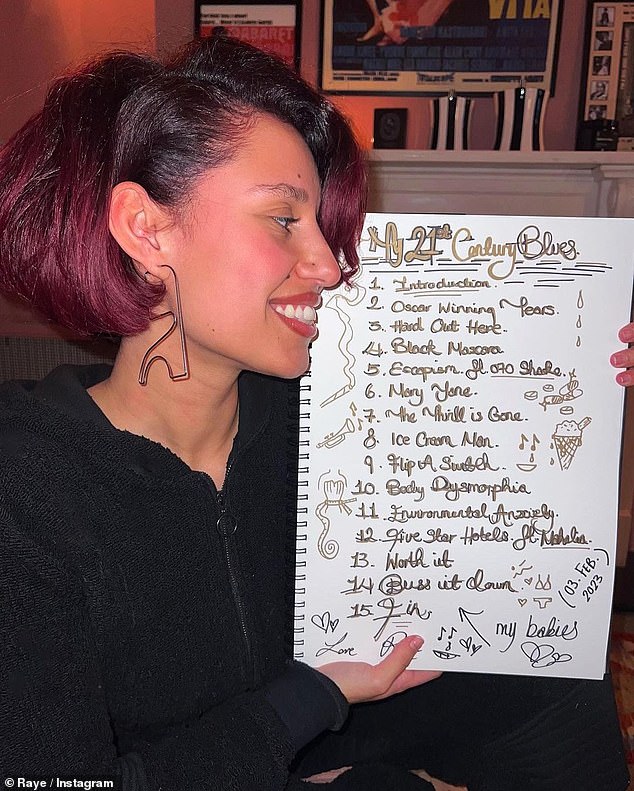 CABARET
VITA
My 21st Century Blues.
1. Introduction.
2. Oscar Winning Tears.
3. Hard Out Here.
4. Black Mascara
5. Escapism. ft. 070 Shake.
6. Mary Jane.
7. The Thrill is Gone.
8. Ice Cream Man.
9. Flip A Switch.
10. Body Dysmorphia
11. Environmental Anxiety.
12. Five Star Hotels. ft Mahalia.
13. Worth it
14. Buss it down
15. Fin.
(03. FEB. 2023)
my babies
Love
© Raye / Instagram